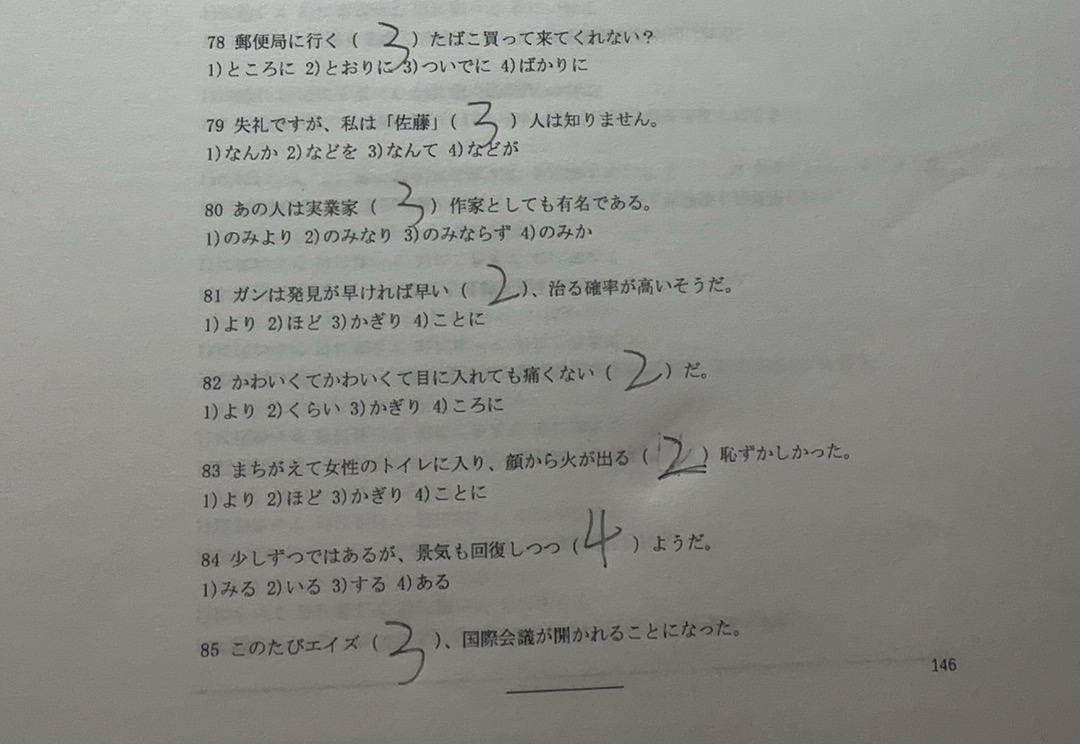 78 郵便局に行く ( 3 ) たばこ買って来てくれない？
1)ところに 2)とおりに 3)ついでに 4)ばかりに
79 失礼ですが、私は「佐藤」( 3 ) 人は知りません。
1)なんか 2)などを 3)なんて 4)などが
80 あの人は実業家 ( 3 ) 作家としても有名である。
1)のみより 2)のみなり 3)のみならず 4)のみか
81 ガンは発見が早ければ早い ( 2 )、治る確率が高いそうだ。
1)より 2)ほど 3)かぎり 4)ことに
82 かわいくてかわいくて目に入れても痛くない ( 2 ) だ。
1)より 2)くらい 3)かぎり 4)ころに
83 まちがえて女性のトイレに入り、顔から火が出る ( 2 ) 恥ずかしかった。
1)より 2)ほど 3)かぎり 4)ことに
84 少しずつではあるが、景気も回復しつつ ( 4 ) ようだ。
1)みる 2)いる 3)する 4)ある
85 このたびエイズ ( 3 )、国際会議が開かれることになった。
146